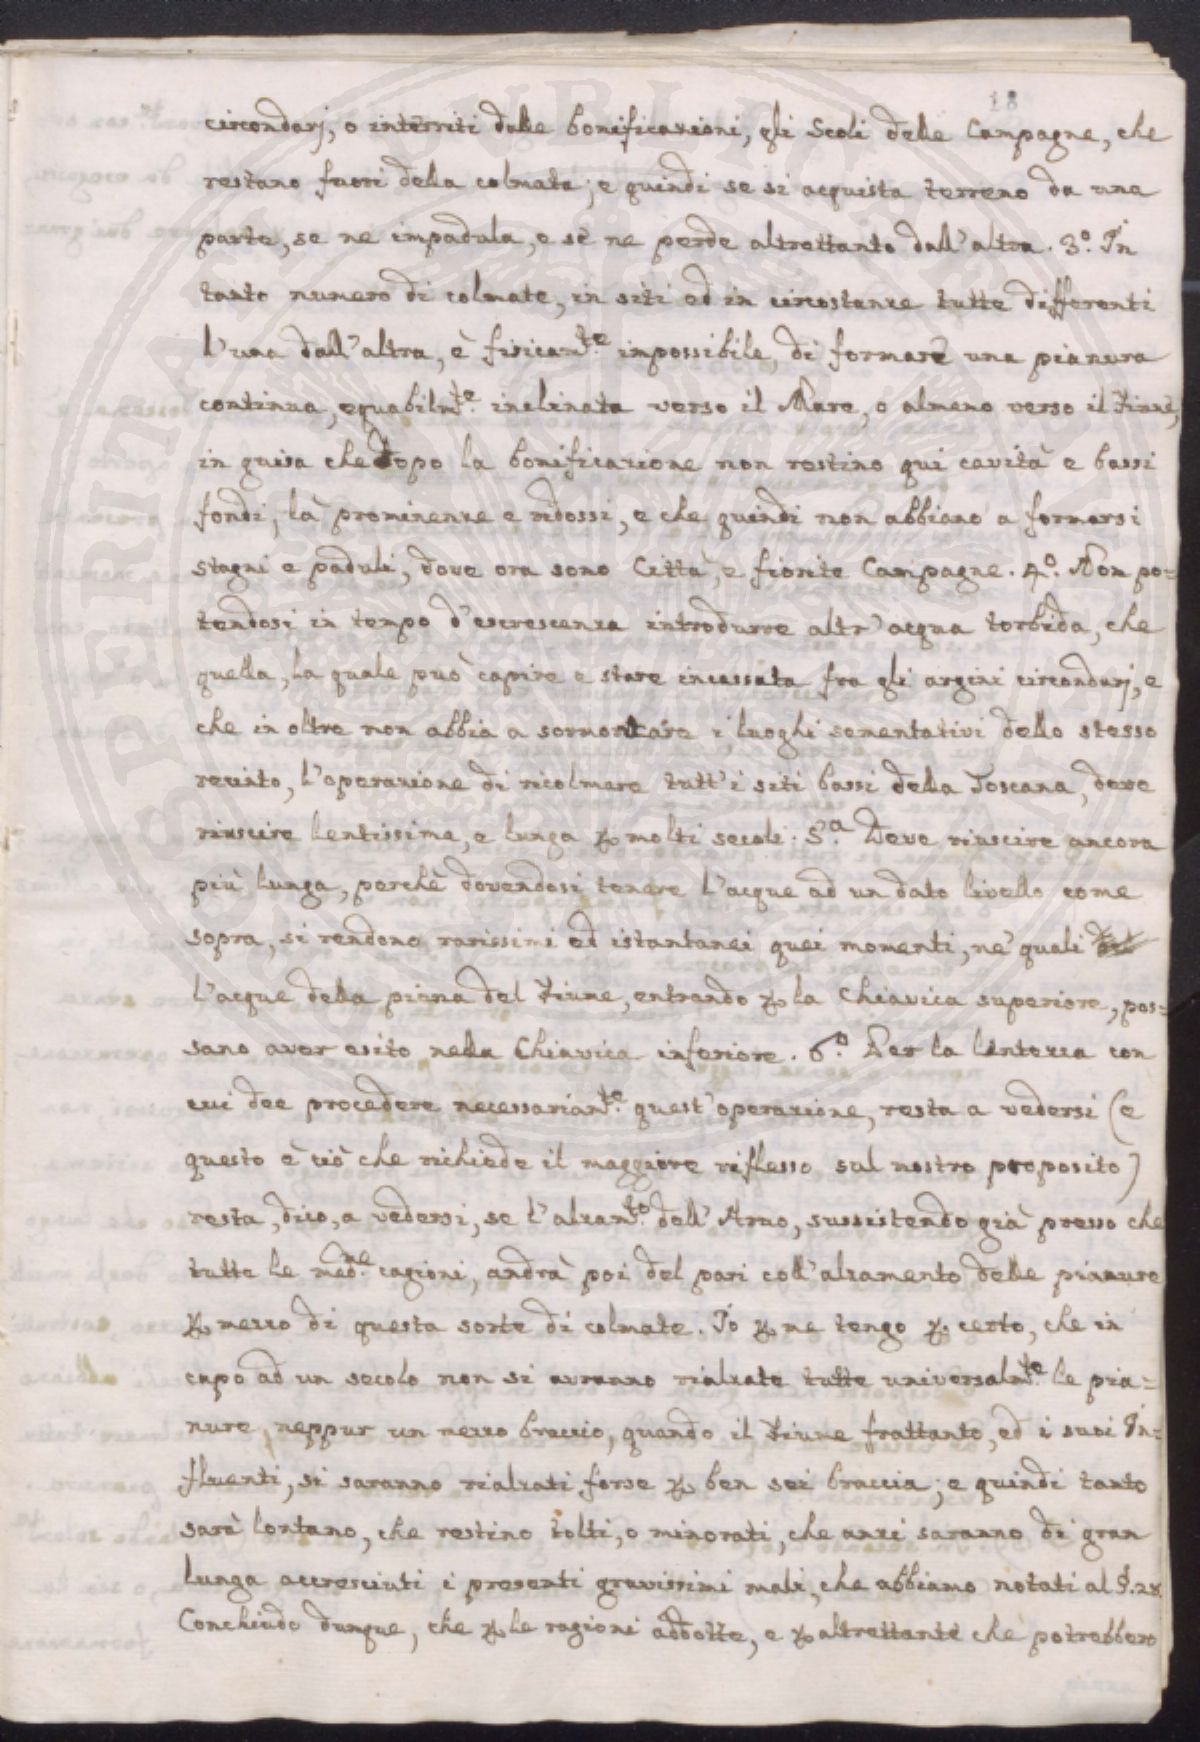 18
circondarj, o interriti dalle bonificazioni, gli Scoli delle Campagne, che
restano fuori della colmata; e quindi se si acquista terreno da una
parte, se ne impadula, e se ne perde altrettanto dall'altra. 3º. In
tanto numero di colmate, in siti ed in circostanze tutte differenti
l'una dall'altra, è fisicam.te impossibile, di formare una pianura
continua, equabilm.te inclinata verso il Mare, o almeno verso il Fiume,
in guisa che dopo la bonificazione non restino qui cavità e bassi
fondi, là prominenze e ridossi, e che quindi non abbiano a formarsi
stagni e paduli, dove ora sono Città, e fiorite Campagne. 4º. Non po=
tendosi in tempo d'escrescenza introdurre altr'acqua torbida, che
quella, la quale può capire e stare incassata fra gli argini circondarj, e
che in oltre non abbia a sormontare i luoghi sementativi dello stesso
recinto, l'operazione di ricolmare tutt'i siti bassi della Toscana, deve
riuscire lentissima, e lunga ꝑ molti secoli. 5.a Deve riuscire ancora
più lunga, perchè dovendosi tenere l'acque ad un dato livello come
sopra, si rendono rarissimi ed istantanei quei momenti, ne' quali
l'acque della piena del Fiume, entrando ꝑ la Chiavica superiore, pos=
sano aver esito nella Chiavica inferiore. 6º. Per la lentezza con
cui dee procedere necessariam.te quest'operazione, resta a vedersi (e
questo è ciò che richiede il maggiore riflesso sul nostro proposito)
resta, dico, a vedersi, se l'alzam.to dell'Arno, sussistendo già presso che
tutte le med.me cagioni, andrà poi del pari coll'alzamento delle pianure
ꝑ mezzo di questa sorte di colmate. Io ꝑ me tengo ꝑ certo, che in
capo ad un secolo non si avranno rialzate tutte universalm.te le pia=
nure, neppur un mezzo braccio, quando il Fiume frattanto, ed i suoi In=
fluenti, si saranno rialzati forse ꝑ ben sei braccia; e quindi tanto
sarà lontano, che restino tolti, o minorati, che anzi saranno di gran
lunga accresciuti i presenti gravissimi mali, che abbiamo notati al §.
Conchiudo dunque, che ꝑ le ragioni addotte, e ꝑ altrettante che potrebbero